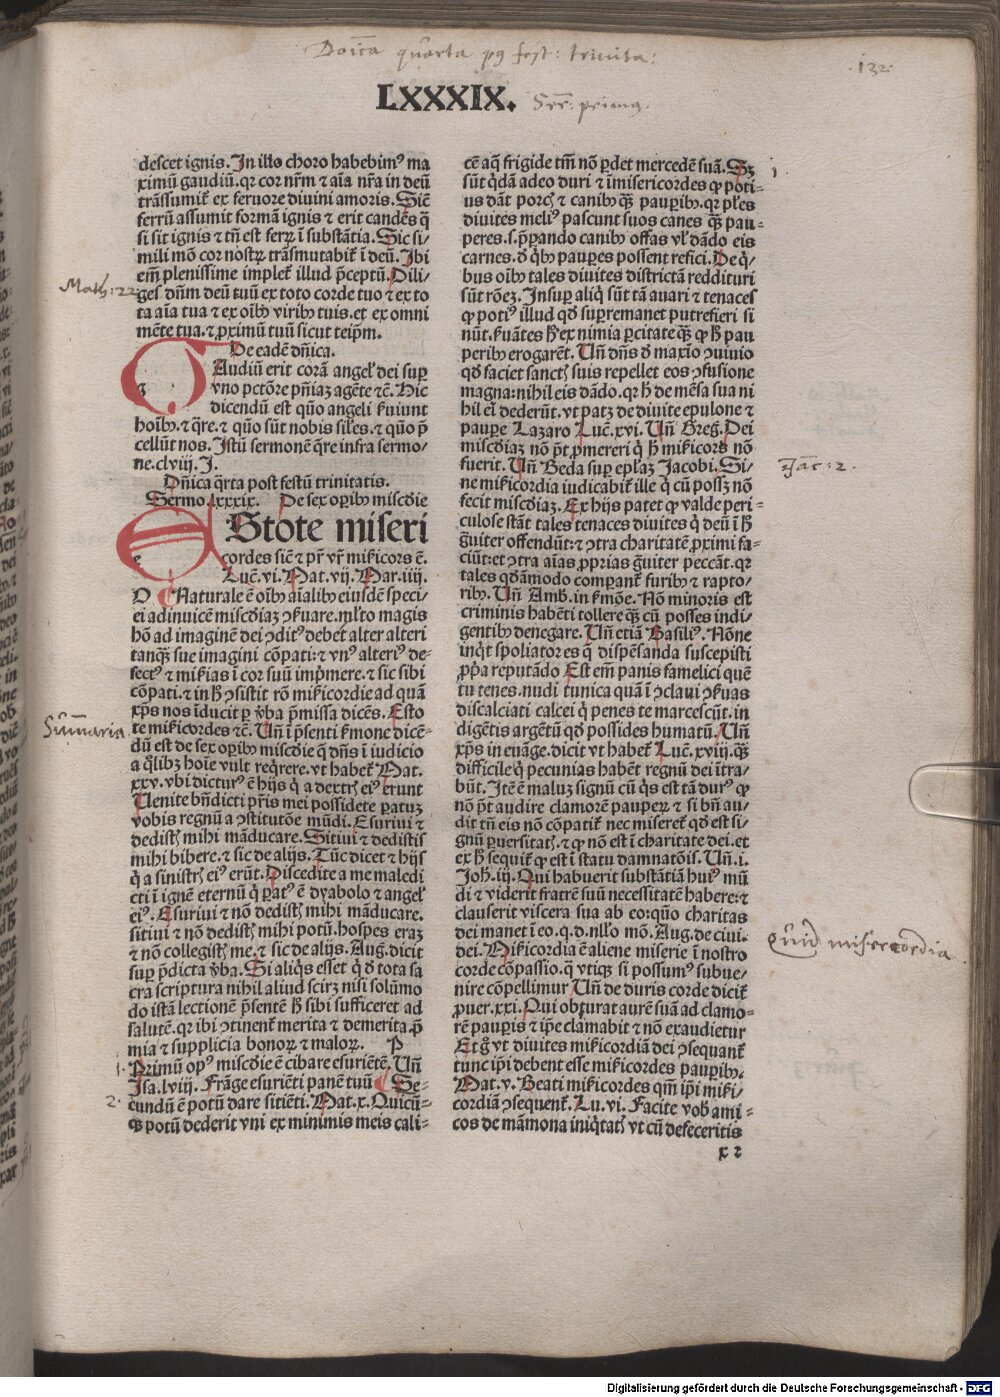 Doīca quarta pꝰ fest: trinita:
132
LXXXIX.
Ser: primꝰ.
descet ignis. In illo choro habebimꝰ ma
ximū gaudiū. qꝛ cor nr̄m ⁊ aīa nr̄a in deū
trāssumit᷑ ex feruore diuini amoris. Sic̄
ferrū assumit formā ignis ⁊ erit candēs q̄
si sit ignis ⁊ tn̄ est ferꝝ ī substātia. Sic si/
mili mō cor nostꝝ trāsmutabit᷑ ī deū. Ibi
em̄ plenissime implet᷑ illud p̄ceptū. Dili/
ges dn̄m deū tuū ex toto corde tuo ⁊ ex to
ta aīa tua ⁊ ex oībꝰ viribꝰ tuis. et ex omni
mēte tua. ⁊ ꝓximū tuū sicut teip̄m.
Math: 22
De eadē dn̄ica.
Gaudiū erit corā angel᷑ dei suꝑ
vno pctōre pn̄iaꝫ agēte ⁊c̄. Hic
dicendū est quō angeli ẜuiunt
hoībꝰ. ⁊ q̄re. ⁊ quō sūt nobis siłes. ⁊ quō p̄
cellūt nos. Istū sermonē q̄re infra sermo/
ne. clviij. J.
Dn̄ica q̄rta post festū trinitatis.
Sermo. lxxxix. De sex oꝑibꝰ misc̄die
EStote miseri
cordes sic̄ ⁊ pr̄ vr̄ mīcors ē.
Luc̄. vi. Mat. vij. Mar. iiij.
O Naturale ē oībꝰ aīalibꝰ eiusdē speci/
ei adinuicē misc̄diaꝫ ↄẜuare. młto magis
hō ad imaginē dei ↄditꝰ debet alter alteri
tanqꝫ sue imagini cōpati: ⁊ vnꝰ alteriꝰ de/
fectꝰ ⁊ mīias ī cor suū imp̄mere. ⁊ sic sibi
cōpati. ⁊ in hꝰ ↄsistit rō mīcordie ad quā
xp̄s nos īducit ꝑ ꝟba p̄missa dicēs. Esto
te mīcordes ⁊c̄. Vn̄ ī p̄senti ẜmone dicē/
dū est de sex oꝑibꝰ misc̄die q̄ dn̄s ī iudicio
a q̄libꝫ hoīe vult req̄rere. vt habet᷑ Mat.
xxv. vbi dicturꝰ ē hijs q̄ a dextrꝭ eiꝰ erunt
Venite bn̄dicti pr̄is mei possidete ꝑatuꝫ
vobis regnū a ↄstitutōe mūdi. Esuriui ⁊
dedistꝭ mihi māducare. Sitiui ⁊ dedistis
mihi bibere. ⁊ sic de alijs. Tūc dicet ⁊ hijs
q̄ a sinistrꝭ eiꝰ erūt. Discedite a me maledi
cti ī ignē eternū q̄ ꝑatꝰ ē dyabolo ⁊ angel᷑
eiꝰ. Esuriui ⁊ nō dedistꝭ mihi māducare.
sitiui ⁊ nō dedistꝭ mihi potū. hospes eraꝫ
⁊ nō collegistꝭ me. ⁊ sic de alijs. Aug. dicit
suꝑ p̄dicta ꝟba. Si aliq̄s esset q̄ ð tota sa
cra scriptura nihil aliud scirꝫ nisi solūmo
do istā lectionē p̄sentē hꝰ sibi sufficeret ad
salutē. qꝛ ibi ↄtinent᷑ merita ⁊ demerita. p̄
mia ⁊ supplicia bonoꝝ ⁊ maloꝝ. P
Primū opꝰ misc̄die ē cibare esuriētē. Vn̄
Isa. lviij. Frāge esuriēti panē tuū Se/
cundū ē potū dare sitiēti. Mat. x. Quicū/
qꝫ potū dederit vni ex minimis meis cali/
Sūmaria
1.
2.
cē aq̄ frigide tm̄ nō ꝑdet mercedē suā. Sꝫ
sūt q̄dā adeo duri ⁊ īmisericordes ꝙ poti/
us dāt porcꝭ ⁊ canibꝰ qꝫ pauꝑibꝰ. qꝛ płes
diuites meliꝰ pascunt suos canes qꝫ pau/
peres. s. p̄ꝑando canibꝰ offas vł dādo eis
carnes. ð q̄bꝰ pauꝑes possent refici. De q̄/
bus oībꝰ tales diuites districtā reddituri
sūt rōeꝫ. Insuꝑ aliq̄ sūt tā auari ⁊ tenaces
ꝙ potiꝰ illud qð supremanet putrefieri si
nūt. ẜuātes hꝰ ex nimia ꝑcitate qꝫ ꝙ hꝰ pau
peribꝰ erogarēt. Vn̄ dn̄s ð maxīo ↄuiuio
qð faciet sanctꝭ suis repellet eos ↄfusione
magna: nihil eis dādo. qꝛ hꝰ de mēsa sua ni
hil eī dederūt. vt patꝫ de diuite epulone ⁊
pauꝑe Lazaro Luc̄. xvi. Vn̄ Greg. Dei
misc̄diaꝫ nō pt̄ ꝓmereri q̄ hꝰ mīcors nō
fuerit. Vn̄ Beda suꝑ ep̄laꝫ Jacobi. Si/
ne mīcordia iudicabit᷑ ille q̄ cū possꝫ nō
fecit misc̄diaꝫ. Ex hijs patet ꝙ valde peri/
culose stāt tales tenaces diuites q̄ deū ī hꝰ
gͣuiter offendūt: ⁊ ↄtra charitatē ꝓximi fa/
ciūt: et ↄtra aīas ꝓprias gͣuiter peccāt. qꝛ
tales qðāmodo comparant᷑ furibꝰ ⁊ rapto/
ribꝰ. Vn̄ Amb. in ẜmōe. Nō minoris est
criminis habēti tollere qꝫ cū posses indi/
gentibꝰ denegare. Vn̄ etiā Basiliꝰ. Nōne
inq̄t spoliator es q̄ dispēsanda suscepisti
ꝓpͥa reputādo Est em̄ panis famelici quē
tu tenes. nudi tunica quā ī ↄclaui ↄẜuas
discalciati calcei q̄ penes te marcescūt. in
digētis argētū qð possides humatū. Vn̄
xp̄s in euāge. dicit vt habet᷑ Luc̄. xviij. qꝫ
difficile q̄ pecunias habēt regnū dei ītra/
būt. Itē ē maluꝫ signū cū q̄s est tā durꝰ ꝙ
nō pt̄ audire clamorē pauperꝝ ⁊ si bn̄ au/
dit tn̄ eis nō cōpatit᷑ nec miseret᷑ qð est si/
gnū ꝑuersitatꝭ. ⁊ ꝙ nō est ī charitate dei. et
ex hꝰ sequit᷑ ꝙ est ī statu damnatōis. Vn̄. i.
Joh̄. iij. Qui habuerit substātiā huiꝰ mū
di ⁊ viderit fratrē suū necessitatē habere: ⁊
clauserit viscera sua ab eo: quō charitas
dei manet ī eo. q. d. nłlo mō. Aug. de ciui.
dei. Mīcordia ē aliene miserie ī nostro
corde cōpassio. q̄ vtiqꝫ si possumꝰ subue/
nire cōpellimur Vn̄ de duris corde dicit᷑
ꝓuer. xxi. Qui obturat aurē suā ad clamo/
rē pauꝑis ⁊ ip̄e clamabit ⁊ nō exaudietur
Et gͦ vt diuites mīcordiā dei ↄsequant᷑
tunc ip̄i debent esse mīcordes pauꝑibꝰ.
Mat. v. Beati mīcordes qm̄ ip̄i mīi/
cordiā ↄsequent᷑. Lu. vi. Facite vobꝭ ami/
cos de māmona iniq̄tatꝭ vt cū defeceritis
x 2
1.
Jac: 2.
Quid misericordia
Digitalisierung gefördert durch die Deutsche Forschungsgemeinschaft - DFG